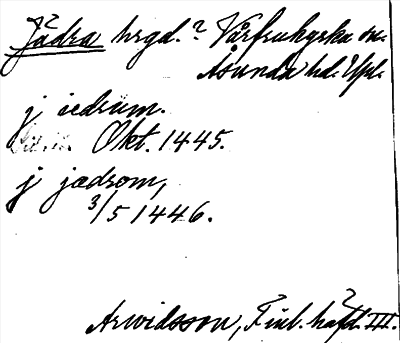 Jädra hrgd.? Vårfrukyrka sn.
Åsunda hd. Upl.
j iedrum.
Okt. 1445.
j jædrom,
3/5 1446.
Arwidsson, Finl. häfd. III.